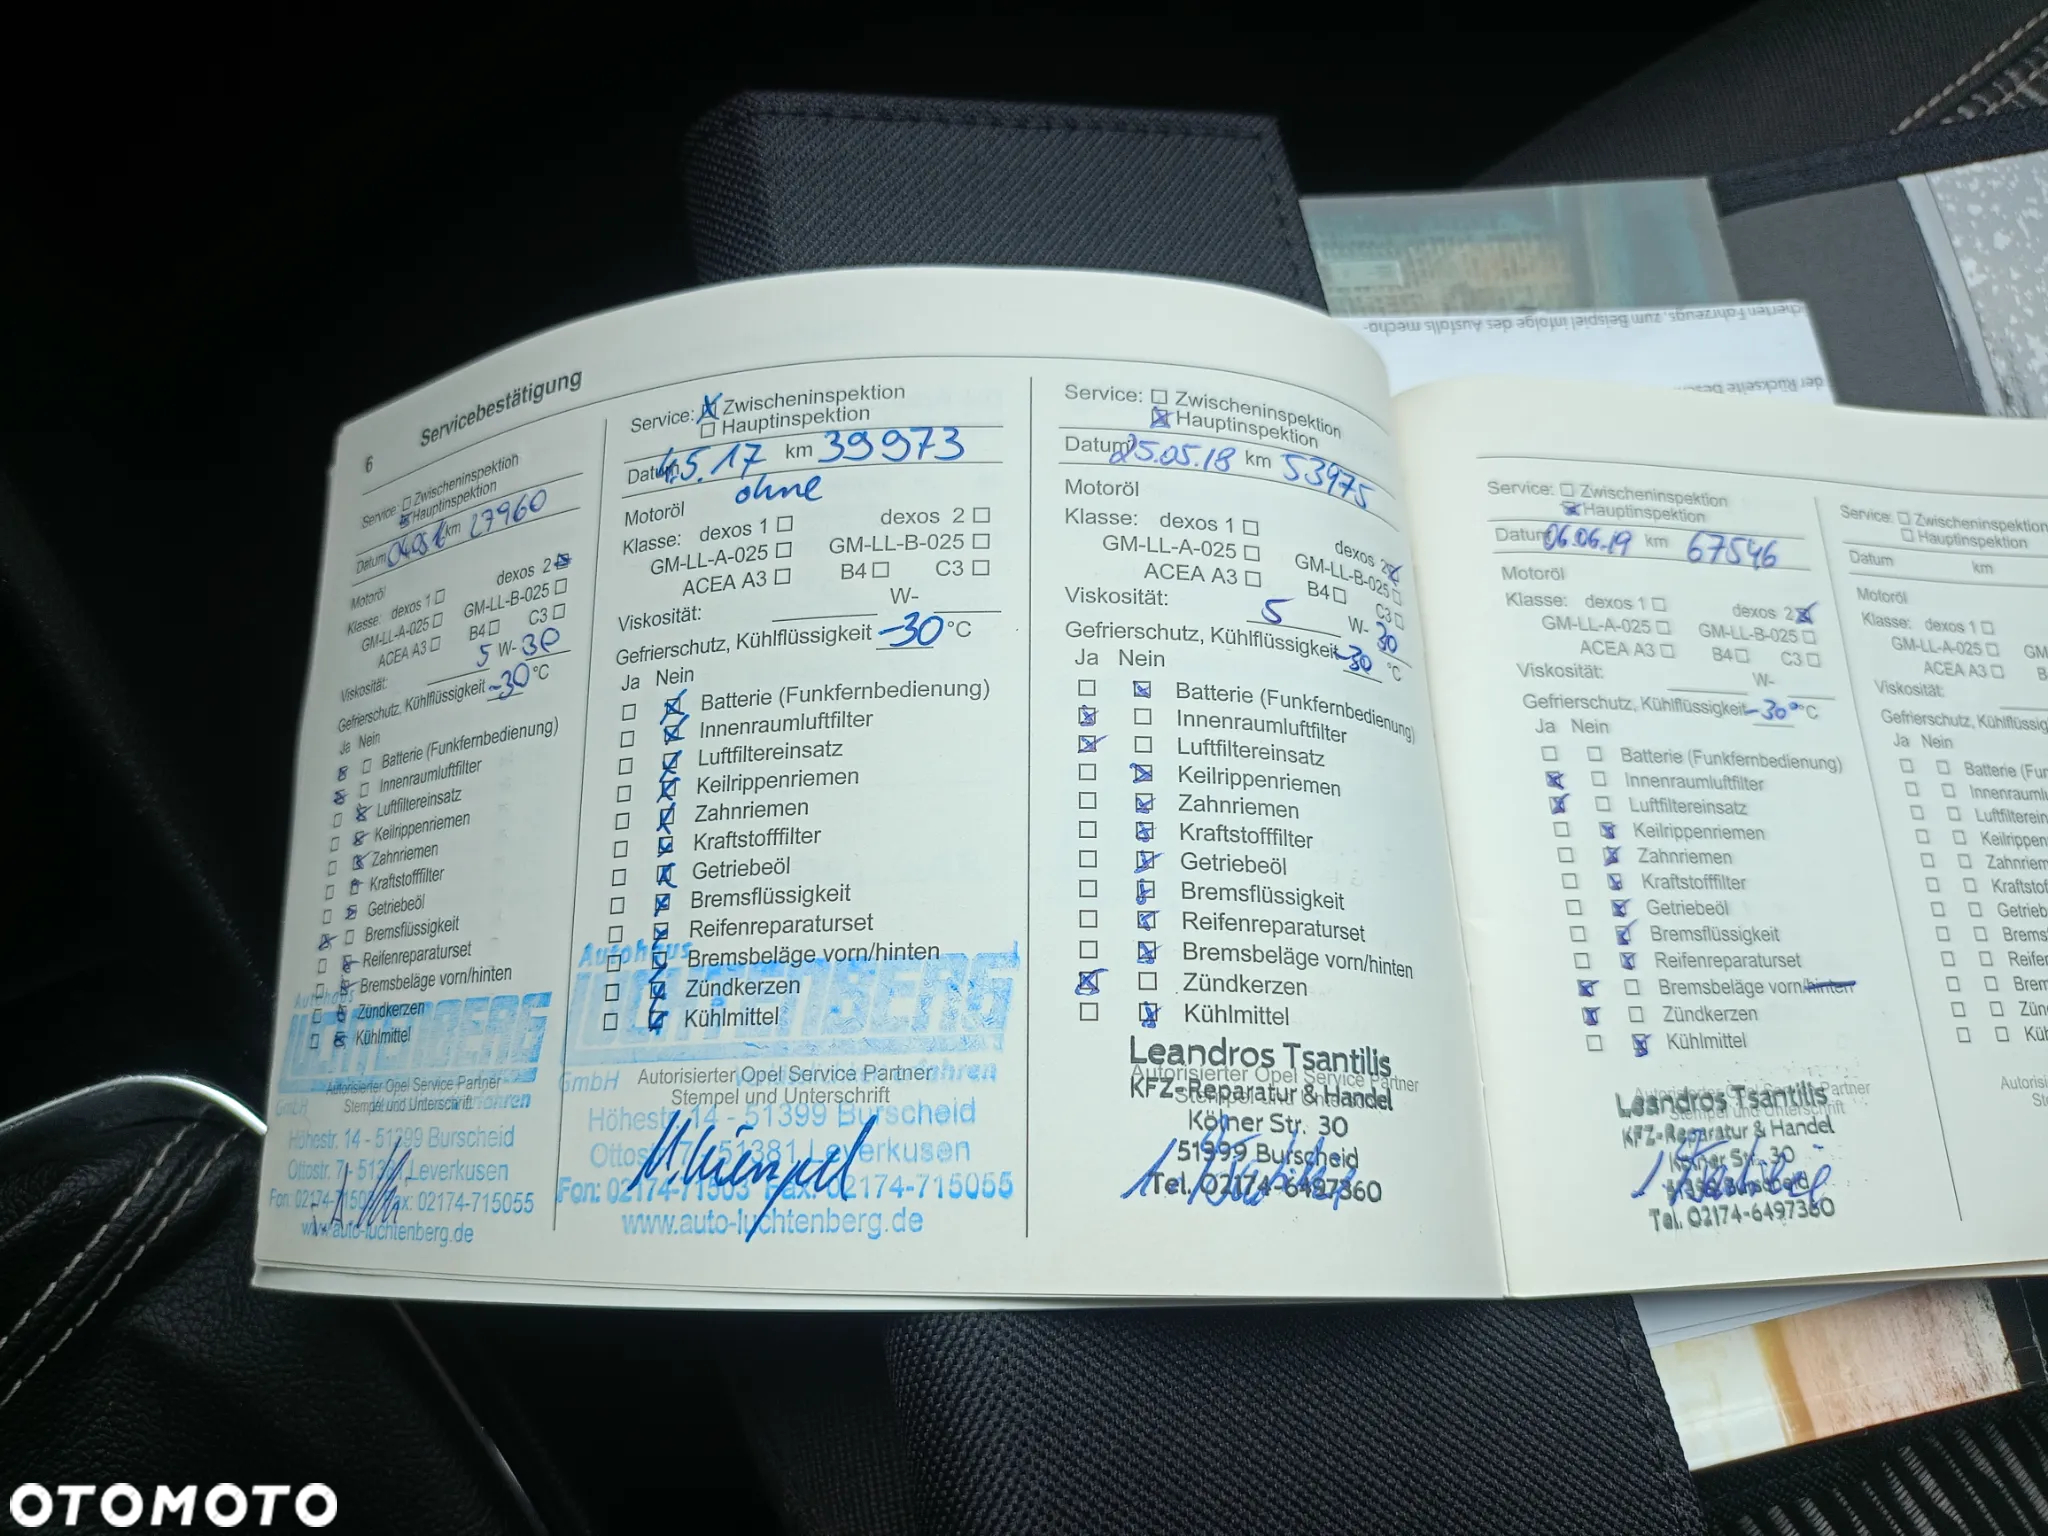 6 Servicebestätigung
Service: Zwischeninspektion
Hauptinspektion
Datum km 27960
Motoröl
Klasse: dexos 1 dexos 2
GM-LL-A-025 GM-LL-B-025
ACEA A3 B4 C3
Viskosität: 5 W- 30
Gefrierschutz, Kühlflüssigkeit -30 °C
Ja Nein
Batterie (Funkfernbedienung)
Innenraumluftfilter
Luftfiltereinsatz
Keilrippenriemen
Zahnriemen
Kraftstofffilter
Getriebeöl
Bremsflüssigkeit
Reifenreparaturset
Bremsbeläge vorn/hinten
Zündkerzen
Kühlmittel
Autohaus
LUCHTENBERG
GmbH
Autorisierter Opel Service Partner
Stempel und Unterschrift
Höhestr. 14 - 51399 Burscheid
Ottostr. 7 - Leverkusen
Fon: 02174-71503 Fax: 02174-715055
www.auto-luchtenberg.de
Service: Zwischeninspektion
Hauptinspektion
Datum 4.5.17 km 39973
Motoröl ohne
Klasse: dexos 1 dexos 2
GM-LL-A-025 GM-LL-B-025
ACEA A3 B4 C3
Viskosität: W-
Gefrierschutz, Kühlflüssigkeit -30 °C
Ja Nein
Batterie (Funkfernbedienung)
Innenraumluftfilter
Luftfiltereinsatz
Keilrippenriemen
Zahnriemen
Kraftstofffilter
Getriebeöl
Bremsflüssigkeit
Reifenreparaturset
Bremsbeläge vorn/hinten
Zündkerzen
Kühlmittel
Autohaus
LUCHTENBERG
GmbH
Autorisierter Opel Service Partner
Stempel und Unterschrift
Höhestr. 14 - 51399 Burscheid
Ottostr. 7 - 51381 Leverkusen
Fon: 02174-71503 Fax: 02174-715055
www.auto-luchtenberg.de
Service: Zwischeninspektion
Hauptinspektion
Datum 25.05.18 km 53975
Motoröl
Klasse: dexos 1 dexos 2
GM-LL-A-025 GM-LL-B-025
ACEA A3 B4 C3
Viskosität: 5 W- 30
Gefrierschutz, Kühlflüssigkeit -30 °C
Ja Nein
Batterie (Funkfernbedienung)
Innenraumluftfilter
Luftfiltereinsatz
Keilrippenriemen
Zahnriemen
Kraftstofffilter
Getriebeöl
Bremsflüssigkeit
Reifenreparaturset
Bremsbeläge vorn/hinten
Zündkerzen
Kühlmittel
Leandros Tsantilis
Autorisierter Opel Service Partner
KFZ-Reparatur & Handel
Kölner Str. 30
51399 Burscheid
Tel. 02174-6497360
Service: Zwischeninspektion
Hauptinspektion
Datum 06.06.19 km 67546
Motoröl
Klasse: dexos 1 dexos 2
GM-LL-A-025 GM-LL-B-025
ACEA A3 B4 C3
Viskosität: W-
Gefrierschutz, Kühlflüssigkeit -30° °C
Ja Nein
Batterie (Funkfernbedienung)
Innenraumluftfilter
Luftfiltereinsatz
Keilrippenriemen
Zahnriemen
Kraftstofffilter
Getriebeöl
Bremsflüssigkeit
Reifenreparaturset
Bremsbeläge vorn/hinten
Zündkerzen
Kühlmittel
Autorisierter Opel Service Partner
Leandros Tsantilis
Stempel und Unterschrift
KFZ-Reparatur & Handel
Kölner Str. 30
51399 Burscheid
Tel. 02174-6497360
Service: Zwischeninspektion
Hauptinspektion
Datum km
Motoröl
Klasse: dexos 1
GM-LL-A-025
ACEA A3
Viskosität:
Gefrierschutz, Kühlflüssig
Ja Nein
Batterie (Fun
Innenrauml
Luftfilterein
Keilrippenr
Zahnriem
Kraftstoff
Getrieb
Brems
Reifen
Brem
Zün
Küh
cherten Fahrzeugs, zum Beispiel infolge des Ausfalls mecha-
der Rückseite
OTOMOTO